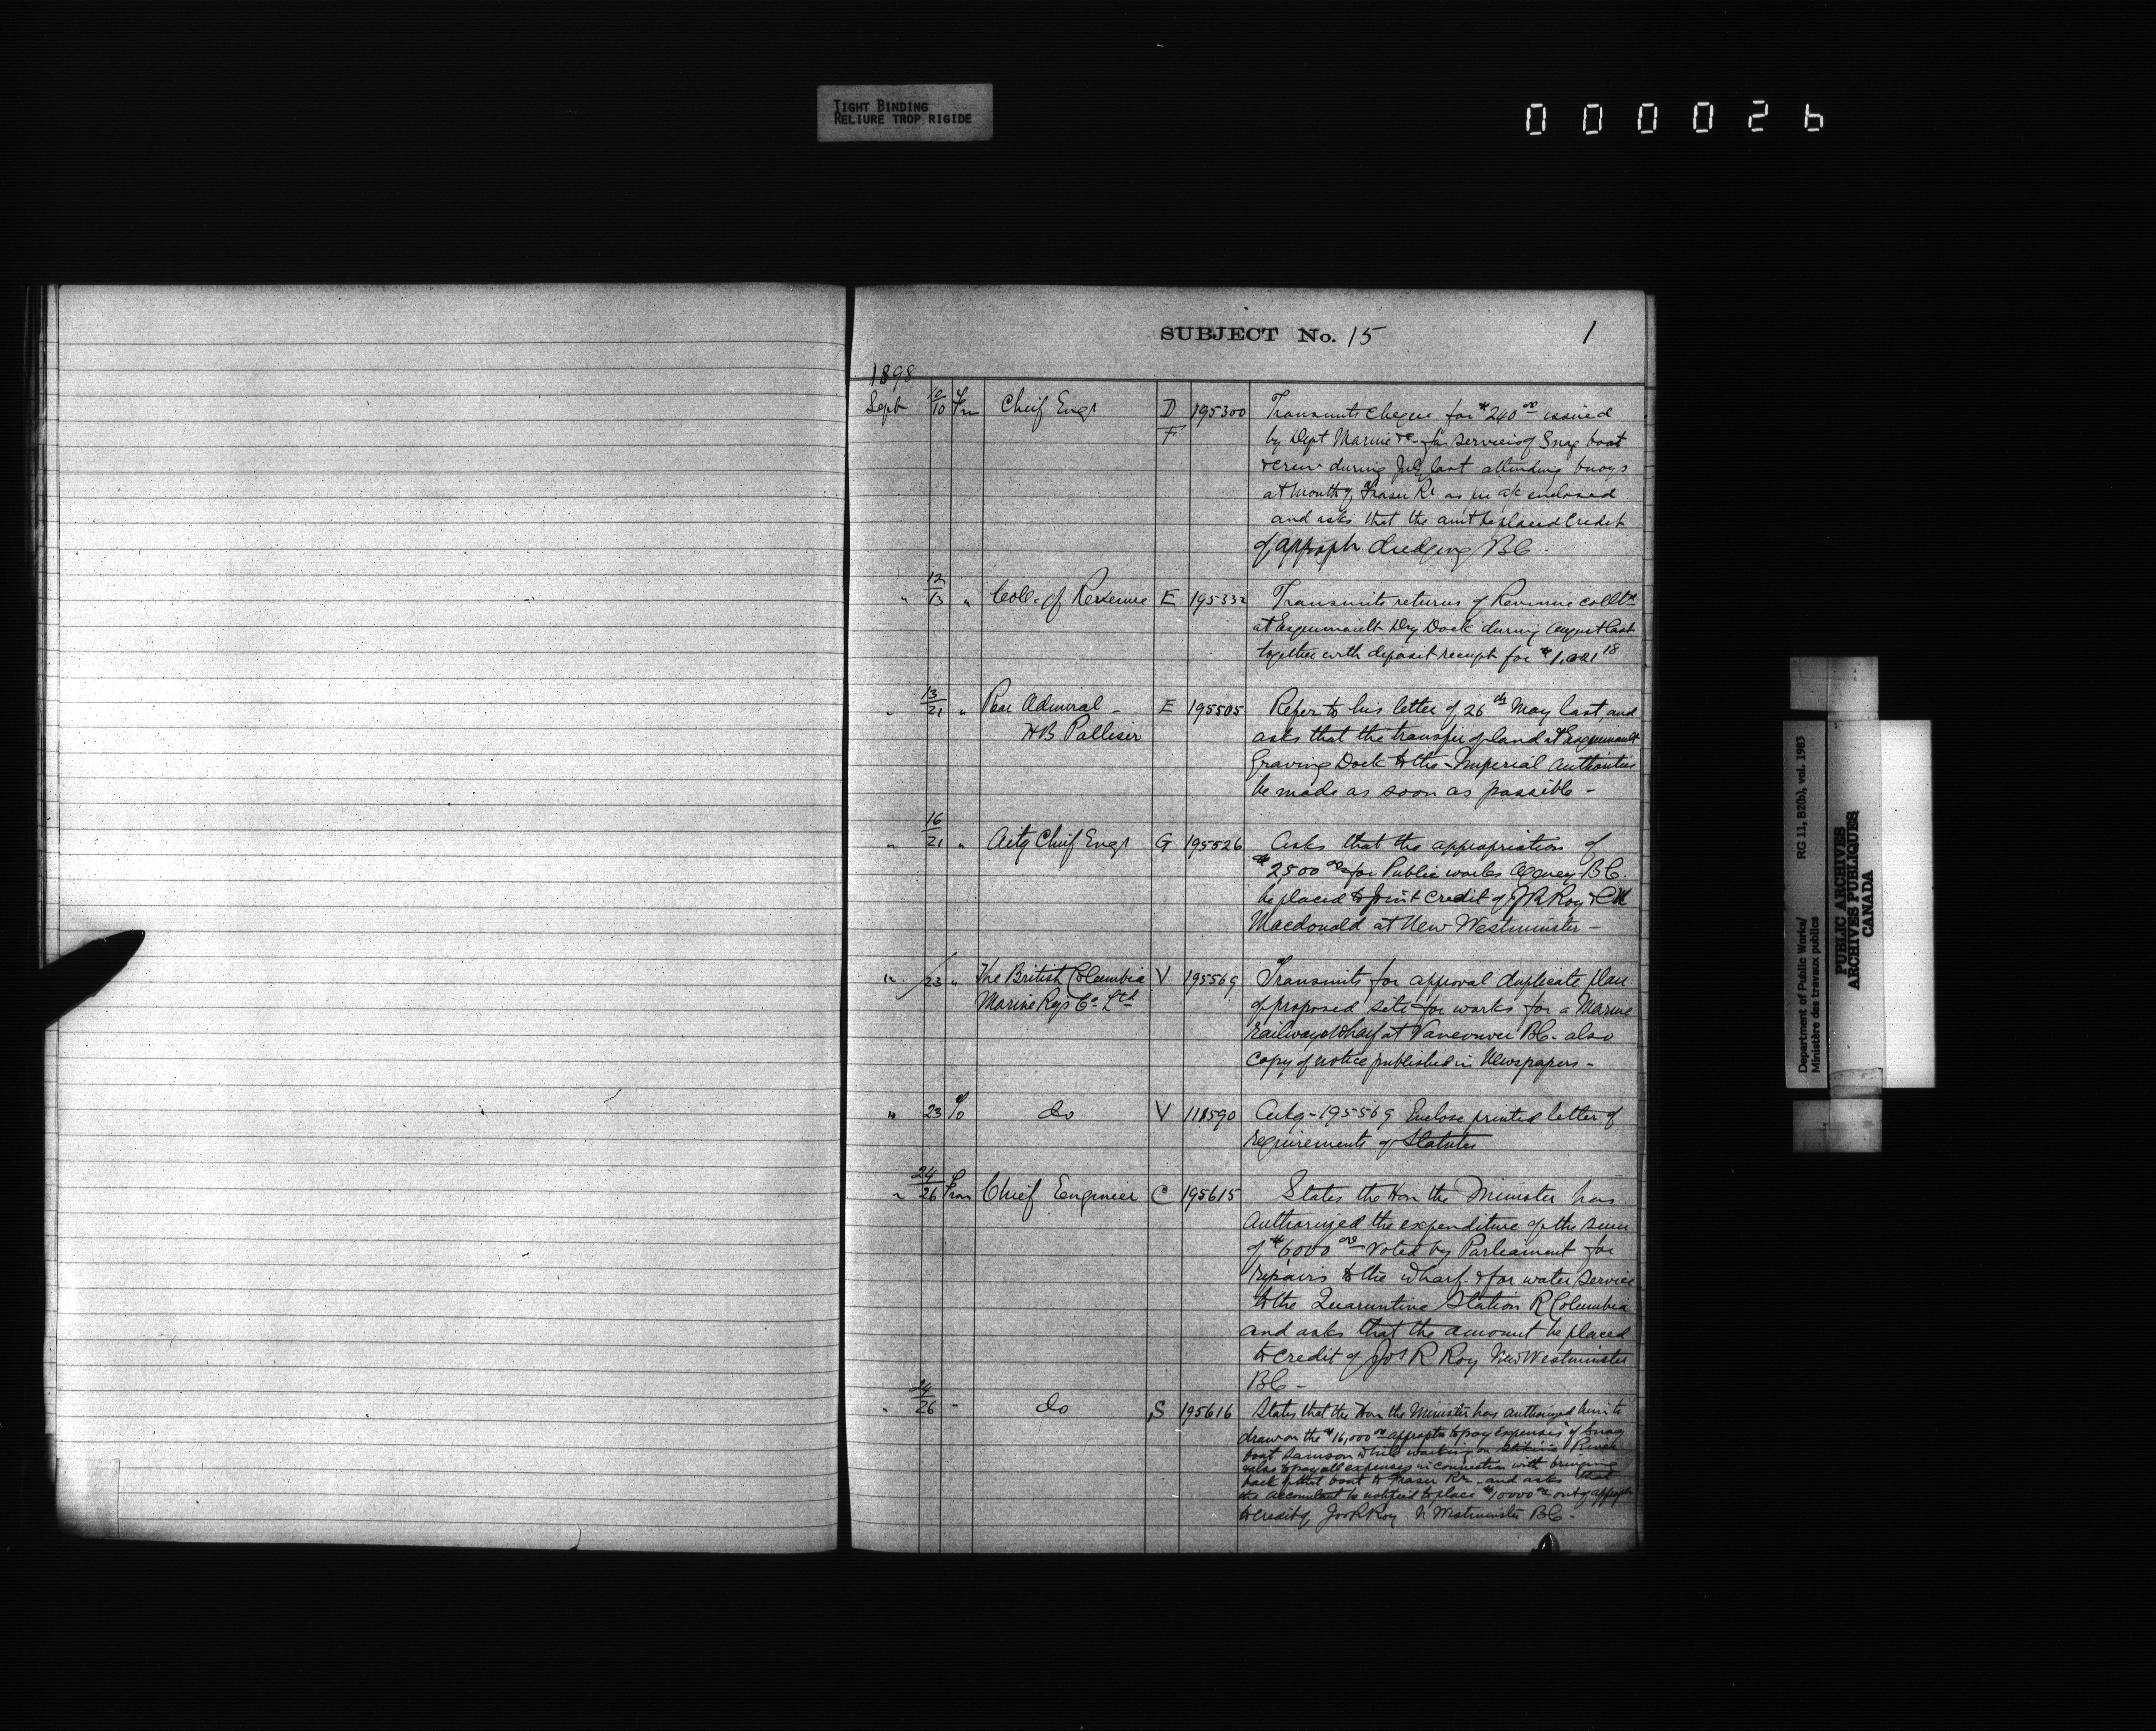 TIGHT BINDING
RELIURE TROP RIGIDE
000026
SUBJECT No. 15
1
1898
Sept 10/10 Frm Chief Engr D/F 195300 Transmits cheque for $240.00 issued
by Dept Marine &c for services of Snag boat
& crew during July last attending buoys
at mouth of Fraser Rr as per a/c enclosed
and asks that the amt be placed Credit
of approph dredging BC.
" 12/13 " Coll. of Revenue E 195332 Transmits returns of Revenue collt'd
at Esquimault Dry Dock during August last
together with deposit receipt for $1,021 18
" 13/21 " Rear Admiral - E 195505 Refer to his letter of 26th May last, and
HB Palliser asks that the transfer of land at Esquimault
Graving Dock to the Imperial Authorities
be made as soon as possible -
" 16/21 " Actg Chief Engr G 195526 Asks that the appropriation of
$2,500 00 for Public works Agency BC.
be placed to joint credit of JR Roy & CM
Macdonald at New Westminster -
12/23 " The British Columbia V 195569 Transmits for approval duplicate plan
Marine Rys Co Ltd of proposed site for works for a Marine
railway & wharf at Vancouver BC. also
Copy of notice published in Newspapers -
" 23 To do V 118590 Ackg - 195569 Enclose printed letter of
requirements of Statutes
" 24/26 From Chief Engineer C 195615 States the Hon the Minister has
authorized the expenditure of the sum
of $6000 00 voted by Parliament for
repairs to the wharf & for water service
to the Quaruntine Station R Columbia
and asks that the amount be placed
to credit of Jos R Roy New Westminster
BC -
" 24/26 " do S 195616 States that the Hon the Minister has authorized him to
draw on the $16,000 00 appropto to pay expenses of Snag
boat Samson while working on Stikine River
& also to pay all expenses in connection with bringing
back of that boat to Fraser Rr and asks that
the accountant be notified to place $10000 00 out of approph
to credit of Jos R Roy N Westminster BC -
Department of Public Works/ RG 11, B2(b), vol. 1983
Ministère des travaux publics
PUBLIC ARCHIVES
ARCHIVES PUBLIQUES
CANADA